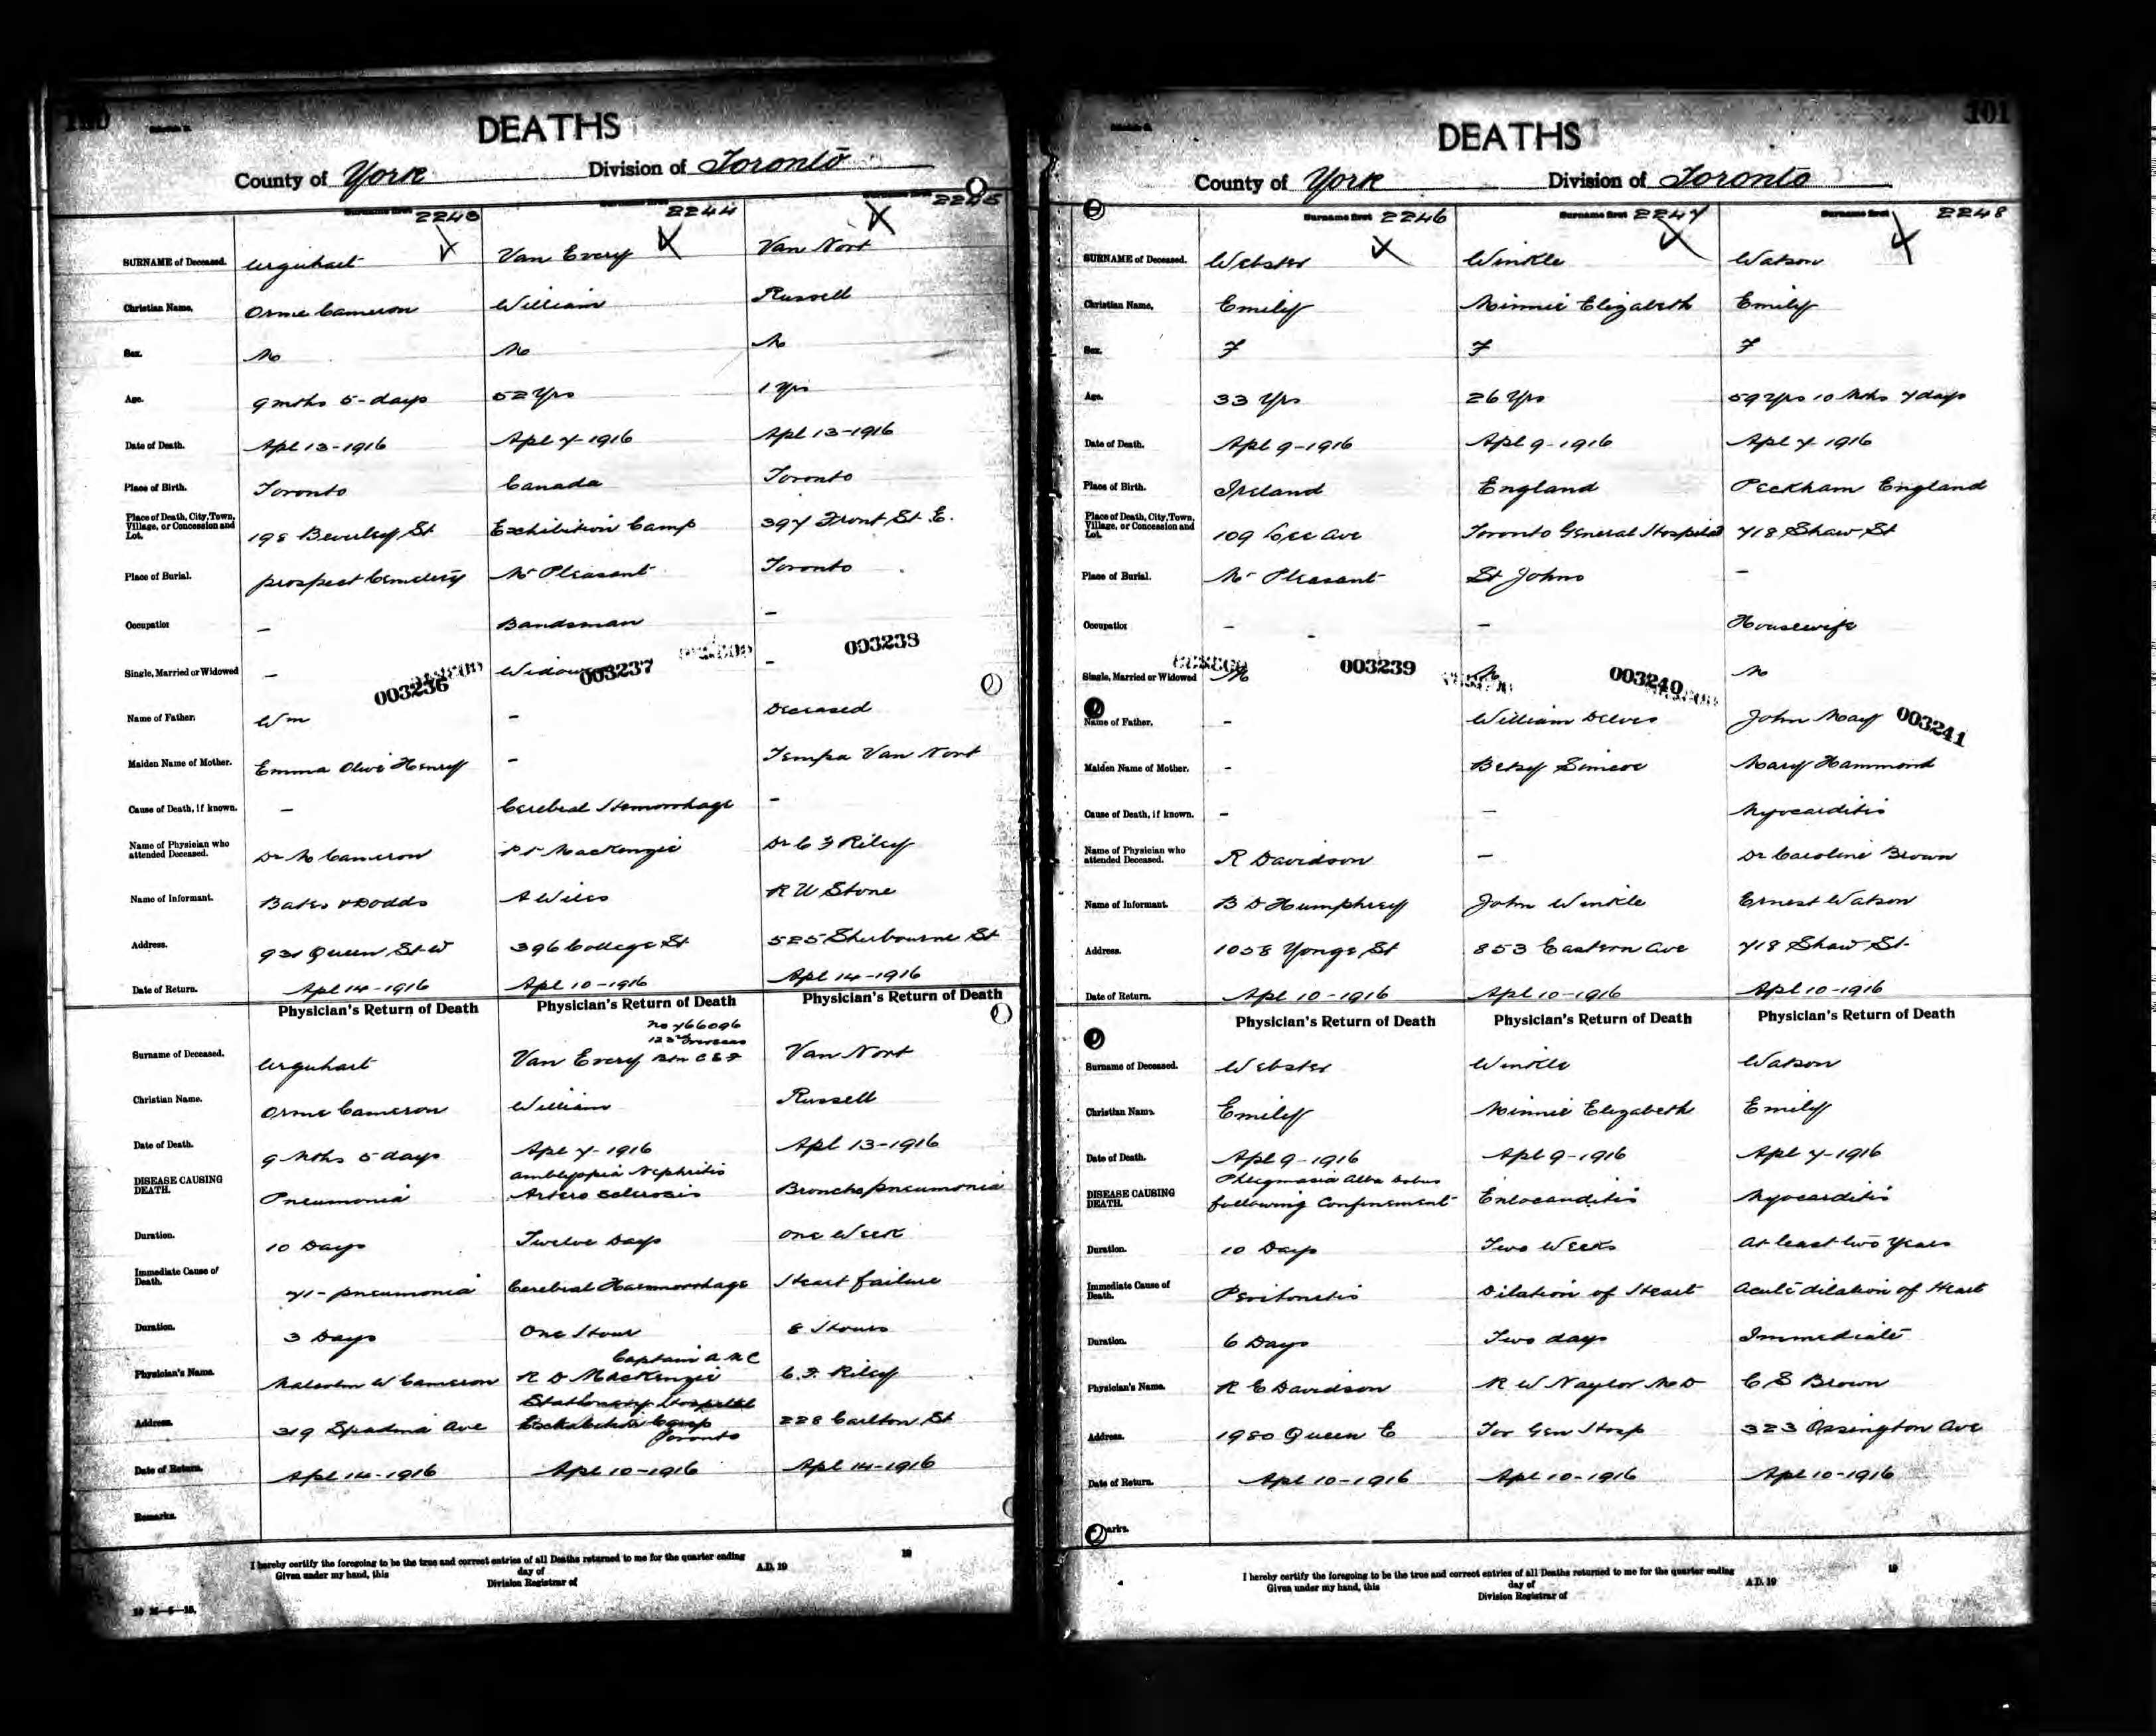 100
DEATHS
County of York Division of Toronto
Surname first 2243 Surname first 2244 Surname first 2245
SURNAME of Deceased. Urquhart Van Every Van Nort
Christian Name. Orme Cameron William Russell
Sex. M M M
Age. 9 mths 5-days 52 Yrs 1 Yrs
Date of Death. Apl 13-1916 Apl 7-1916 Apl 13-1916
Place of Birth. Toronto Canada Toronto
Place of Death, City, Town, Village, or Concession and Lot. 198 Beverley St Exhibition Camp 397 Front St E.
Place of Burial. prospect Cemetery Mt Pleasant Toronto
Occupation - Bandsman -
Single, Married or Widowed - Widower -
003236 003237 003238
Name of Father. Wm - Deceased
Maiden Name of Mother. Emma Olive Henry - Tempa Van Nort
Cause of Death, if known. - Cerebral Hemorrhage -
Name of Physician who attended Deceased. Dr M Cameron MacKenzie Dr C F Riley
Name of Informant. Bates & Dodds A W Miles R U Stone
Address. 931 Queen St W 396 College St 525 Sherbourne St
Date of Return. Apl 14-1916 Apl 10-1916 Apl 14-1916
Physician's Return of Death Physician's Return of Death Physician's Return of Death
No 766096
123rd Overseas
Surname of Deceased. Urquhart Van Every Btn C E F Van Nort
Christian Name. Orme Cameron William Russell
Date of Death. 9 Mths 5 days Apl 7-1916 Apl 13-1916
DISEASE CAUSING DEATH. Pneumonia Amblyopia Nephritis Artero Sclerosis Bronchopneumonia
Duration. 10 Days Twelve Days One Week
Immediate Cause of Death. pneumonia Cerebral Haemorrhage Heart failure
Duration. 3 Days One Hour 8 Hours
Captain A M C
Physician's Name. Malcolm W Cameron R D MacKenzie C. F. Riley
Address. 319 Spadina Ave Stationary Hospital Exhibition Camp Toronto 228 Carlton St
Date of Return. Apl 14-1916 Apl 10-1916 Apl 14-1916
Remarks.
I hereby certify the foregoing to be the true and correct entries of all Deaths returned to me for the quarter ending 19
Given under my hand, this day of A.D. 19
Division Registrar of
101
DEATHS
County of York Division of Toronto
Surname first 2246 Surname first 2247 Surname first 2248
SURNAME of Deceased. Webster Winkle Watson
Christian Name. Emily Minnie Elizabeth Emily
Sex. F F F
Age. 33 Yrs 26 Yrs 59 Yrs 10 Mths 7 days
Date of Death. Apl 9-1916 Apl 9-1916 Apl 7-1916
Place of Birth. Ireland England Peckham England
Place of Death, City, Town, Village, or Concession and Lot. 109 Lee Ave Toronto General Hospital 718 Shaw St
Place of Burial. Mt Pleasant St Johns -
Occupation - - Housewife
Single, Married or Widowed M M M
003239 003240 003241
Name of Father. - William Delves John May
Maiden Name of Mother. - Betsy Simcoe Mary Hammond
Cause of Death, if known. - - Myocarditis
Name of Physician who attended Deceased. R Davidson - Dr Caroline Brown
Name of Informant. B D Humphrey John Winkle Ernest Watson
Address. 1058 Yonge St 853 Eastern Ave 718 Shaw St
Date of Return. Apl 10-1916 Apl 10-1916 Apl 10-1916
Physician's Return of Death Physician's Return of Death Physician's Return of Death
Surname of Deceased. Webster Winkle Watson
Christian Name. Emily Minnie Elizabeth Emily
Date of Death. Apl 9-1916 Apl 9-1916 Apl 7-1916
DISEASE CAUSING DEATH. Phlegmasia Alba Dolens following Confinement Endocarditis Myocarditis
Duration. 10 Days Two Weeks At least two Years
Immediate Cause of Death. Peritonitis Dilation of Heart Acute dilation of Heart
Duration. 6 Days Two days Immediate
Physician's Name. R E Davidson R W Naylor M D C S Brown
Address. 1980 Queen E Tor Gen Hosp 323 Ossington Ave
Date of Return. Apl 10-1916 Apl 10-1916 Apl 10-1916
I hereby certify the foregoing to be the true and correct entries of all Deaths returned to me for the quarter ending 19
Given under my hand, this day of A.D. 19
Division Registrar of